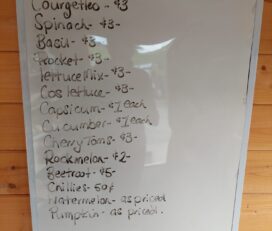 Courgettes - $3
Spinach - $3-
Basil - $3
Rocket - $3-
lettuce Mix - $3-
Cos lettuce - $3-
Capsicum - $1 each
Cucumber - $1 each
Cherry Toms - $3-
Rockmelon - $2-
Beetroot - $5-
Chillies - 50¢
Watermelon - as priced
Pumpkin - as priced.